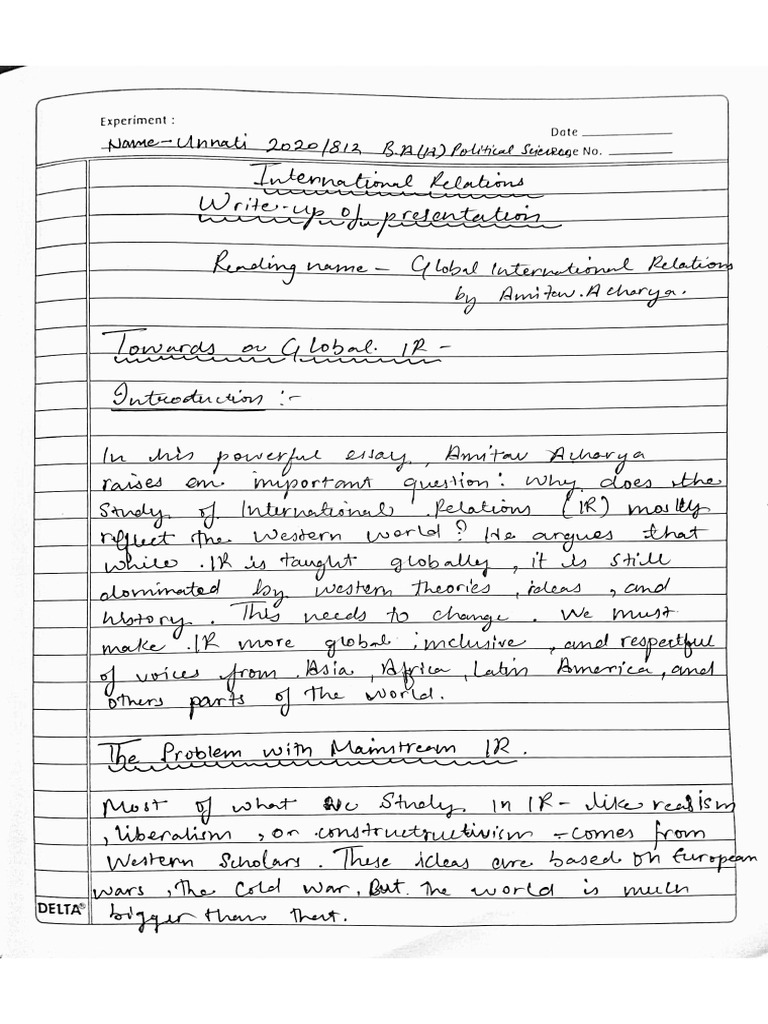 Experiment :
Date
Name - Unnati 2020/812 B.A(H) Political Science No.
International Relations
Write-up of presentation
Reading name - Global International Relations
by Amitav. Acharya.
Towards a Global IR -
Introduction :-
In this powerful essay, Amitav Acharya
raises an important question: Why does the
Study of International Relations (IR) mostly
reflect the Western world? He argues that
while IR is taught globally, it is still
dominated by western theories, ideas, and
history. This needs to change. We must
make IR more global, inclusive, and respectful
of voices from Asia, Africa, Latin America, and
others parts of the world.
The Problem with Mainstream IR.
Most of what we Study in IR - like realism
, liberalism, or constructructivism - comes from
Western Scholars. These ideas are based on European
wars, the Cold War, But the world is much
bigger than that.
DELTA®